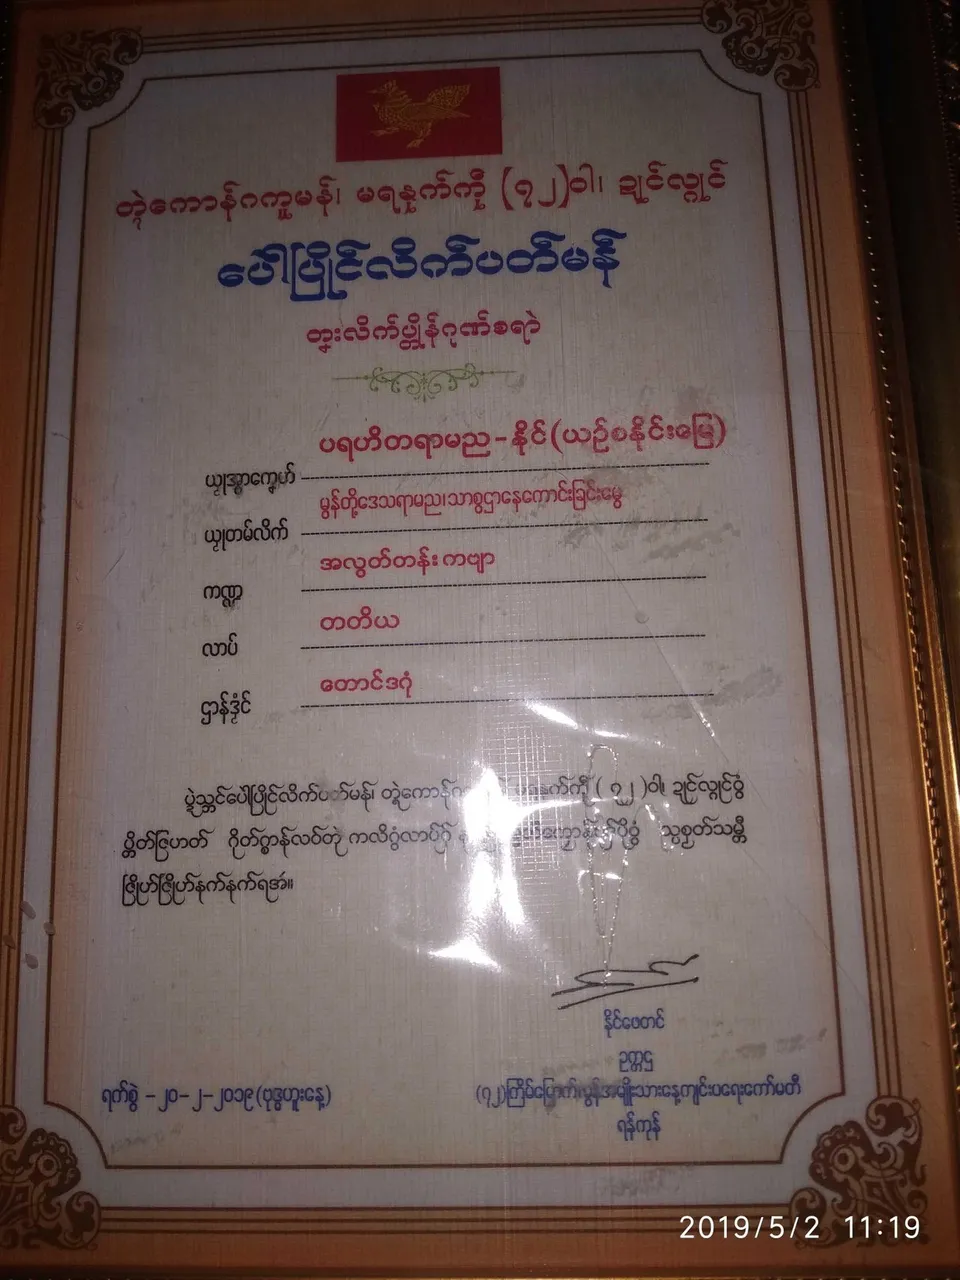 တ္ၚဲကောန်ဂကူမန်၊ မရနုက်ကဵု (၇၂)ဝါ၊ ဍုင်လ္ဂုင်
ပေါဲပြိုင်လိက်ပတ်မန်
တၞးလိက်ပ္တိုန်ဂုဏ်စရာဲ
ပရဟိတရာမည - နိုင် (ယဉ်စနိုင်းမြေ)
ယၟုအ္စာက္ဍေဟ်
မွန်တို့ဒေသရာမည၊သာစွဌာနေကောင်းခြင်းမွေ
ယၟုတမ်လိက်
အလွတ်တန်း ကဗျာ
ကဏ္ဍ
တတိယ
လာပ်
တောင်ဒဂုံ
ဌာန်ဒၟံင်
ပွဲသ္ဘင်ပေါဲပြိုင်လိက်ပတ်မန်၊ တ္ၚဲကောန် က်ကဵု ( ၇၂ )ဝါ၊ ဍုင်လ္ဂုင်ဝွံ
ပ္တိတ်ဇြဟတ် ဂိုတ်ဂ္စာန်လဝ်တုဲ ကလိဂွံလာပ်
ဇြိုဟ်ဇြိုဟ်နက်နက်ရအဴ။
နိုင်ဖေတင်
ဥက္ကဋ္ဌ
ရက်စွဲ - ၂၀-၂-၂၀၁၉ (ဗုဒ္ဓဟူးနေ့)
(၇၂)ကြိမ်မြောက် မွန်အမျိုးသားနေ့ကျင်းပရေးကော်မတီ
ရန်ကုန်
2019/5/2 11:19